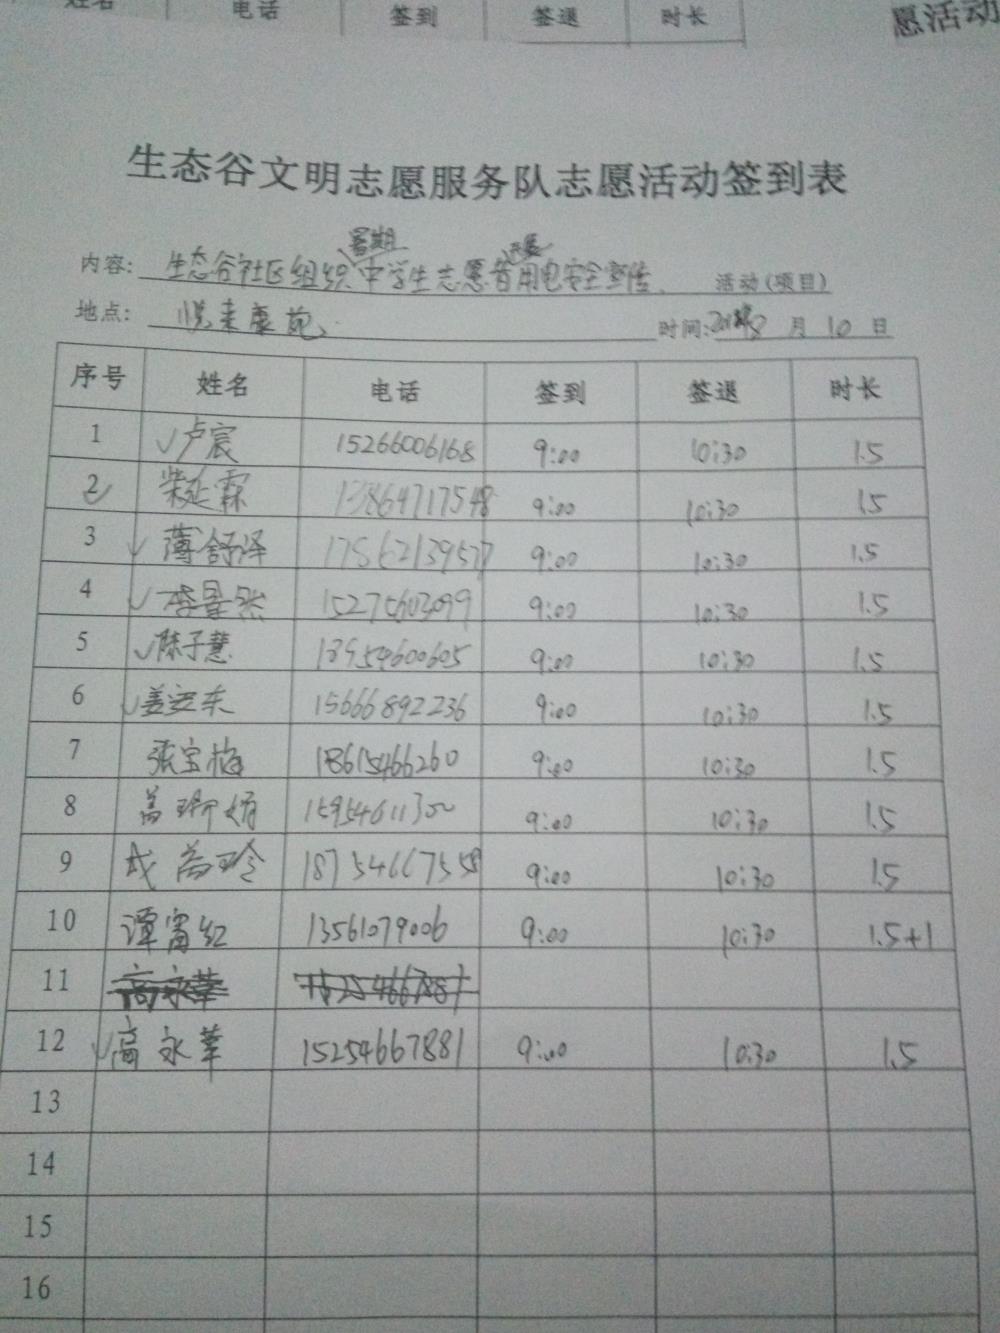 电话 签到 签退 时长
愿活动
生态谷文明志愿服务队志愿活动签到表
内容: 生态谷社区组织暑期中学生志愿者开展用电安全宣传 活动(项目)
地点: 悦来康苑 时间: 8 月 10 日
序号 姓名 电话 签到 签退 时长
1 ✓卢宸 15266006168 9:00 10:30 1.5
2 ✓ 柴延霖 13864717548 9:00 10:30 1.5
3 ✓薄舒泽 17562139577 9:00 10:30 1.5
4 ✓李昱然 15275603099 9:00 10:30 1.5
5 ✓陈子慧 18954600605 9:00 10:30 1.5
6 ✓姜运东 15666892236 9:00 10:30 1.5
7 张宝梅 18615466260 9:00 10:30 1.5
8 9:00 10:30 1.5
9 18754667558 9:00 10:30 1.5
10 谭富红 13561079006 9:00 10:30 1.5+1
11 高永华
12 ✓高永华 15254667881 9:00 10:30 1.5
13
14
15
16